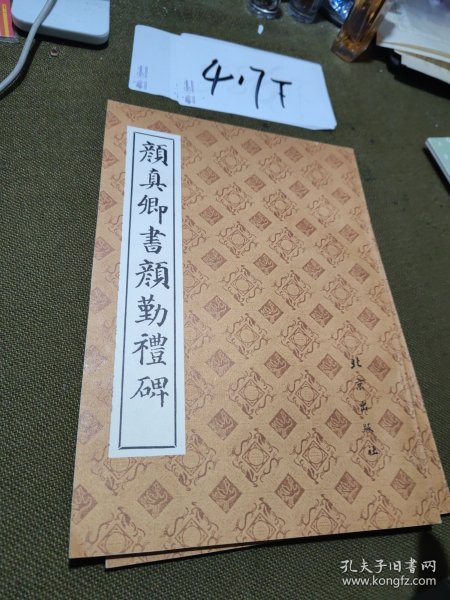 4.7T
顔真卿書顔勤禮碑
北京出版社
孔夫子旧书网
www.kongfz.com